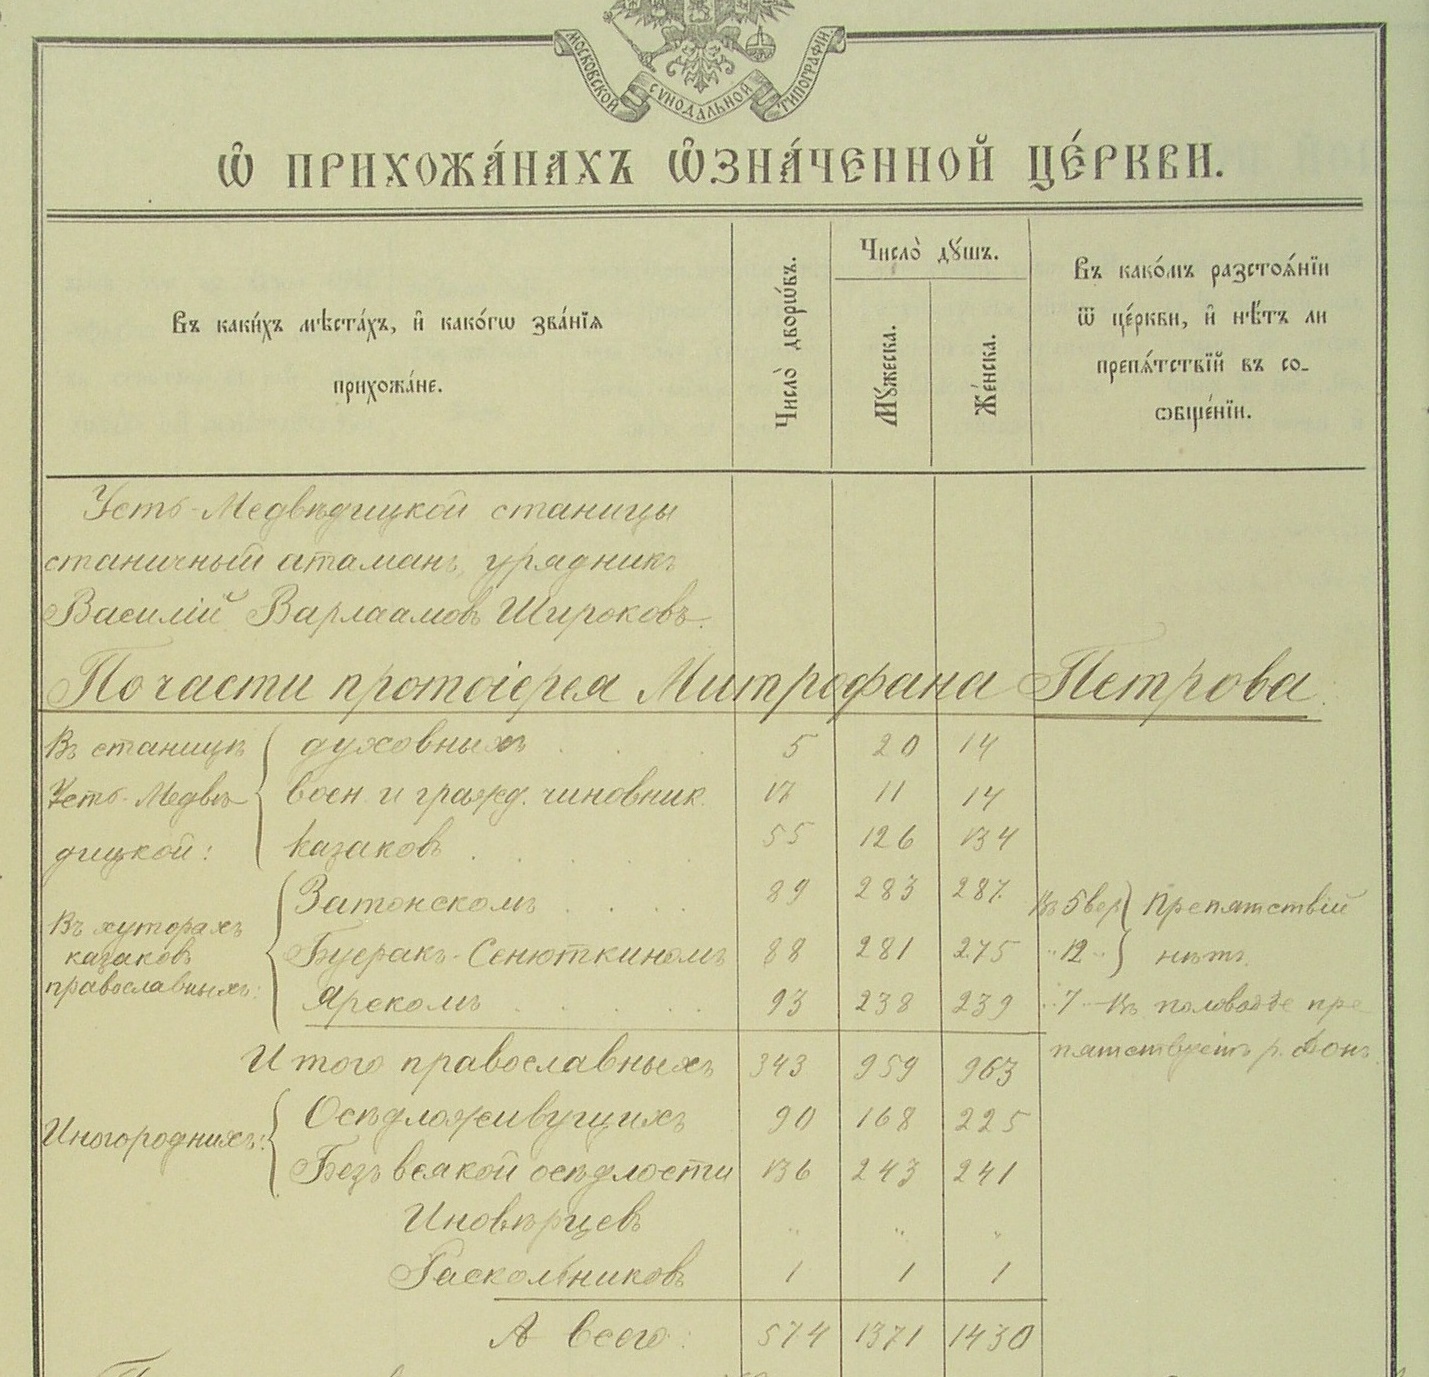 МОСКОВСКОЙ СѴНОДАЛЬНОЙ ТИПОГРАФІИ
Ѡ ПРИХОЖА́НАХЪ Ѡ҆ЗНА́ЧЕННОЙ ЦЕ́РКВИ.
Въ каки́хъ мѣста́хъ, и҆ како́гѡ зва́нїѧ
прихожа́не.
Число̀ дворѡ́въ.
Число̀ дꙋ́шъ.
Мꙋ́жеска.
Же́нска.
Въ како́мъ разстоѧ́нїи
ѿ це́ркви, и҆ нѣ́тъ ли
препѧ́тствїй въ со-
ѻбще́нїи.
Усть-Медвѣдицкой станицы
станичный атаманъ, урядникъ
Василій Варлаамовъ Широковъ.
По части протоіерея Митрофана Петрова
Въ станицѣ духовныхъ . . . 5 20 14
Усть-Медвѣ- воен. и гражд. чиновник. 17 11 14
дицкой: казаковъ . . . . . 55 126 134
Въ хуторахъ казаковъ православныхъ:
Затонскомъ . . . . 89 283 287 Въ 5 вер. Препятствій
Буеракъ-Сенюткиномъ 88 281 275 „ 12 „ нѣтъ.
Ярскомъ . . . . . 93 238 239 „ 7 – Въ половодье пре
пятствуетъ р. Донъ
Итого православныхъ 343 959 963
Иногороднихъ: Осѣдложивущихъ 90 168 225
Безъ всякой осѣдлости 136 243 241
Иновѣрцевъ „ „ „
Раскольниковъ 1 1 1
А всего: 574 1371 1430